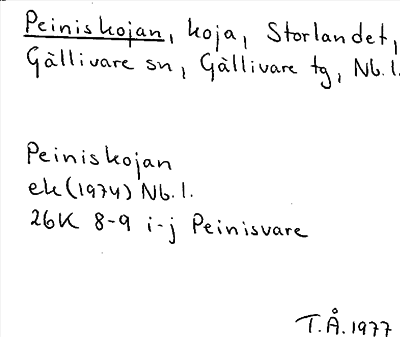 Peiniskojan, koja, Storlandet,
Gällivare sn, Gällivare tg, Nb. l.
Peiniskojan
ek (1974) Nb. l.
26K 8-9 i-j Peinisvare
T.Å. 1977